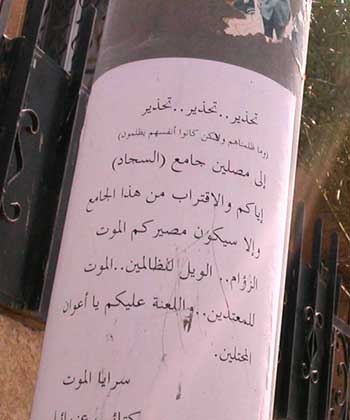 تحذير..تحذير..تحذير
(وما ظلمناهم ولكن كانوا أنفسهم يظلمون)
إلى مصلين جامع (السجاد)
إياكم والاقتراب من هذا الجامع
وإلا سيكون مصيركم الموت
الزؤام.. الويل للظالمين..الموت
للمعتدين.. واللعنة عليكم يا أعوان
المحتلين.
سرايا الموت